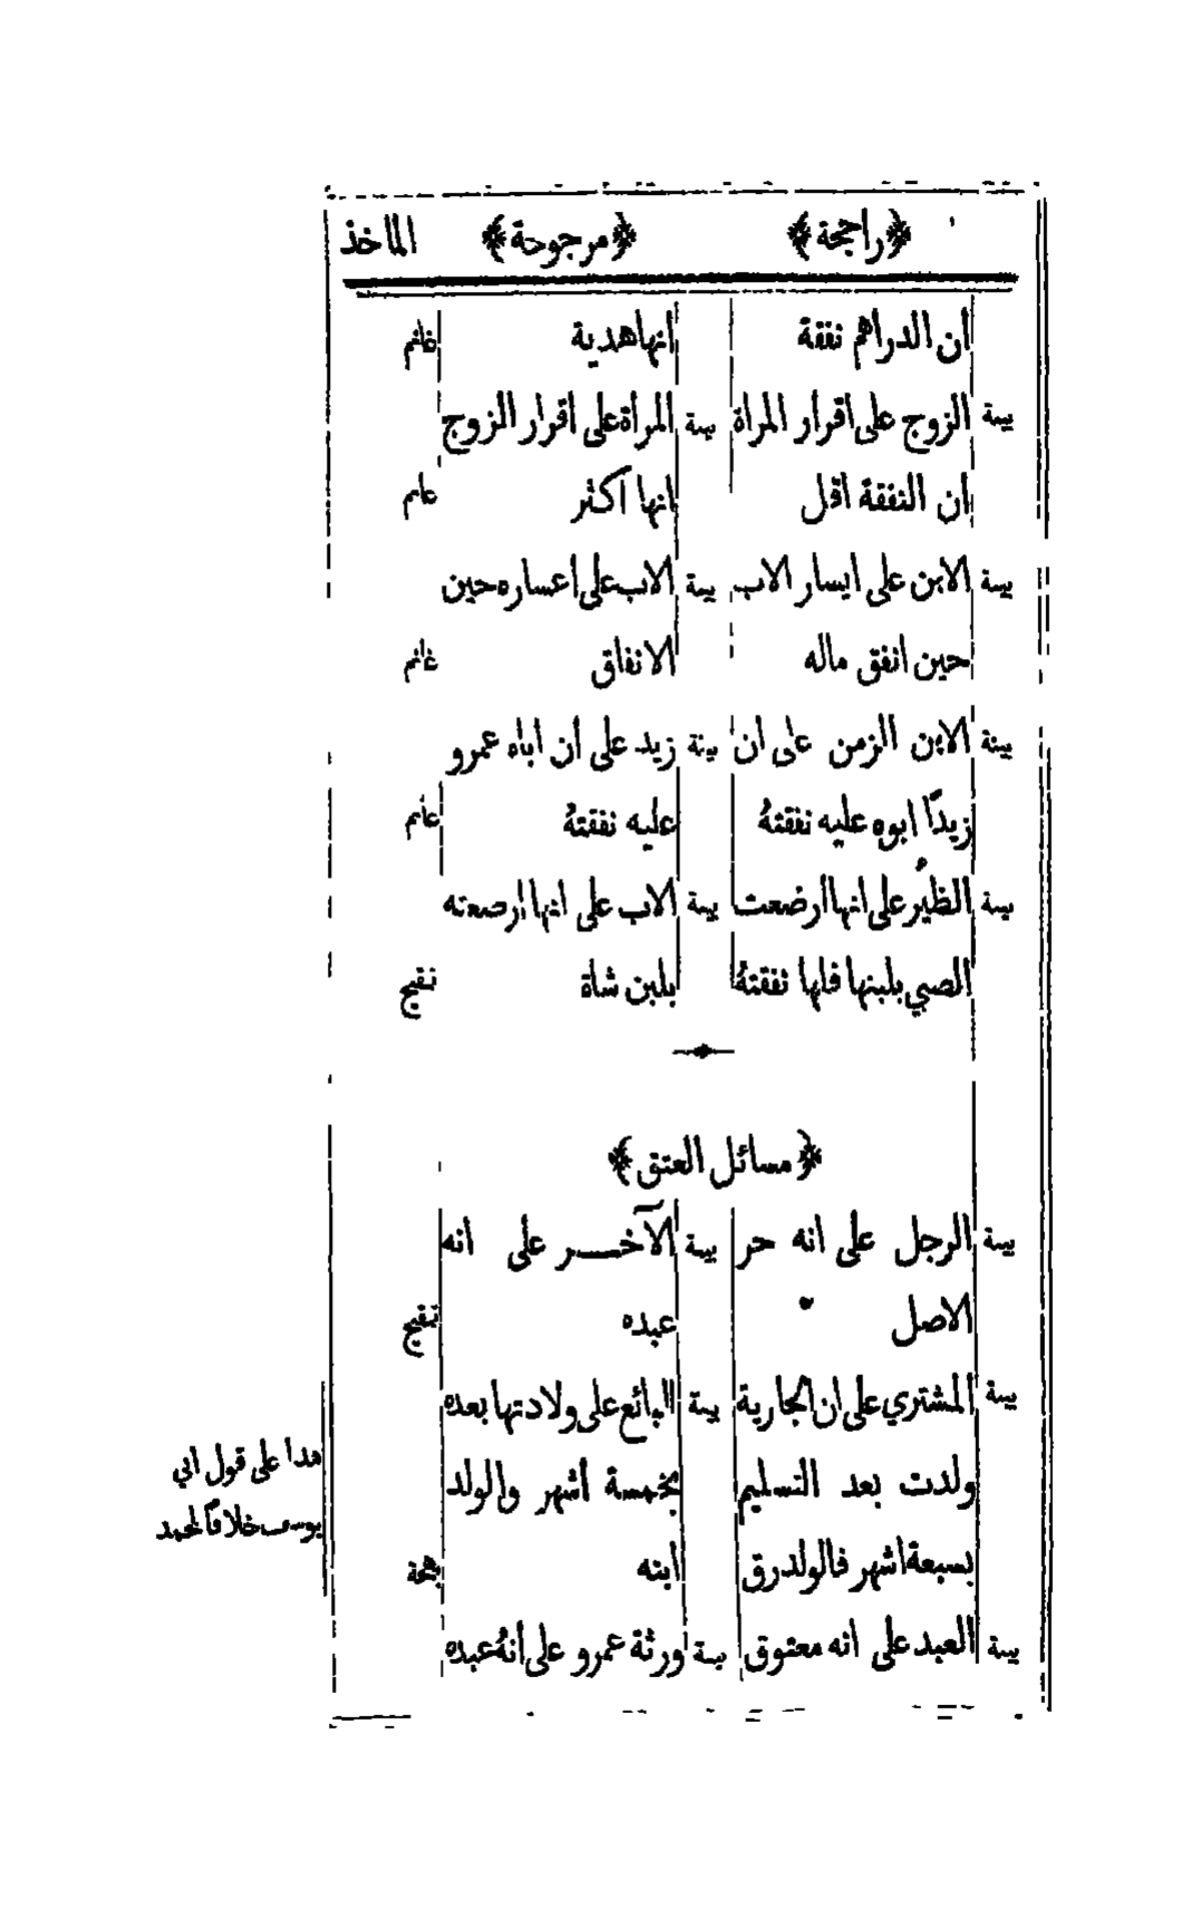 ﴿راجحة﴾ ﴿مرجوحة﴾ الماخذ
ان الدراهم نفقة انها هدية غانم
بينة الزوج على اقرار المراة بينة المرأة على اقرار الزوج
ان النفقة اقل انها اكثر غانم
بينة الابن على ايسار الاب بينة الاب على اعساره حين
حين انفق ماله الانفاق غانم
بينة الابن الزمن على ان بينة زيد على ان اباه عمرو
زيدًا ابوه عليه نفقتهُ عليه نفقتهُ غانم
بينة الظئر على انها ارضعت بينة الاب على انها ارضعته
الصبي بلبنها فلها نفقتهُ بلبن شاة نقيح
﴿مسائل العتق﴾
بينة الرجل على انه حر بينة الآخر على انه
الاصل عبده نقيح
بينة المشتري على ان الجارية بينة البائع على ولادتها بعده
ولدت بعد التسليم بخمسة أشهر والولد
بسبعة اشهر فالولد رق ابنه بهجة
هذا على قول ابي
يوسف خلافًا لمحمد
بينة العبد على انه معتوق بينة ورثة عمرو على أنهُ عبده